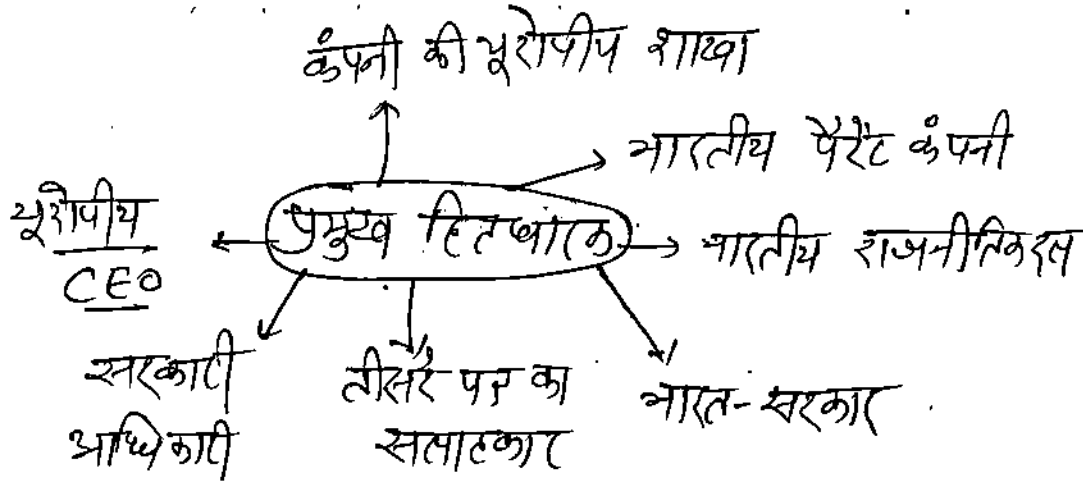 कंपनी की यूरोपीय शाखा
भारतीय पैरेंट कंपनी
यूरोपीय
CEO
प्रमुख हितधारक
भारतीय राजनीतिक दल
सरकारी
अधिकारी
तीसरे पक्ष का
सलाहकार
भारत-सरकार